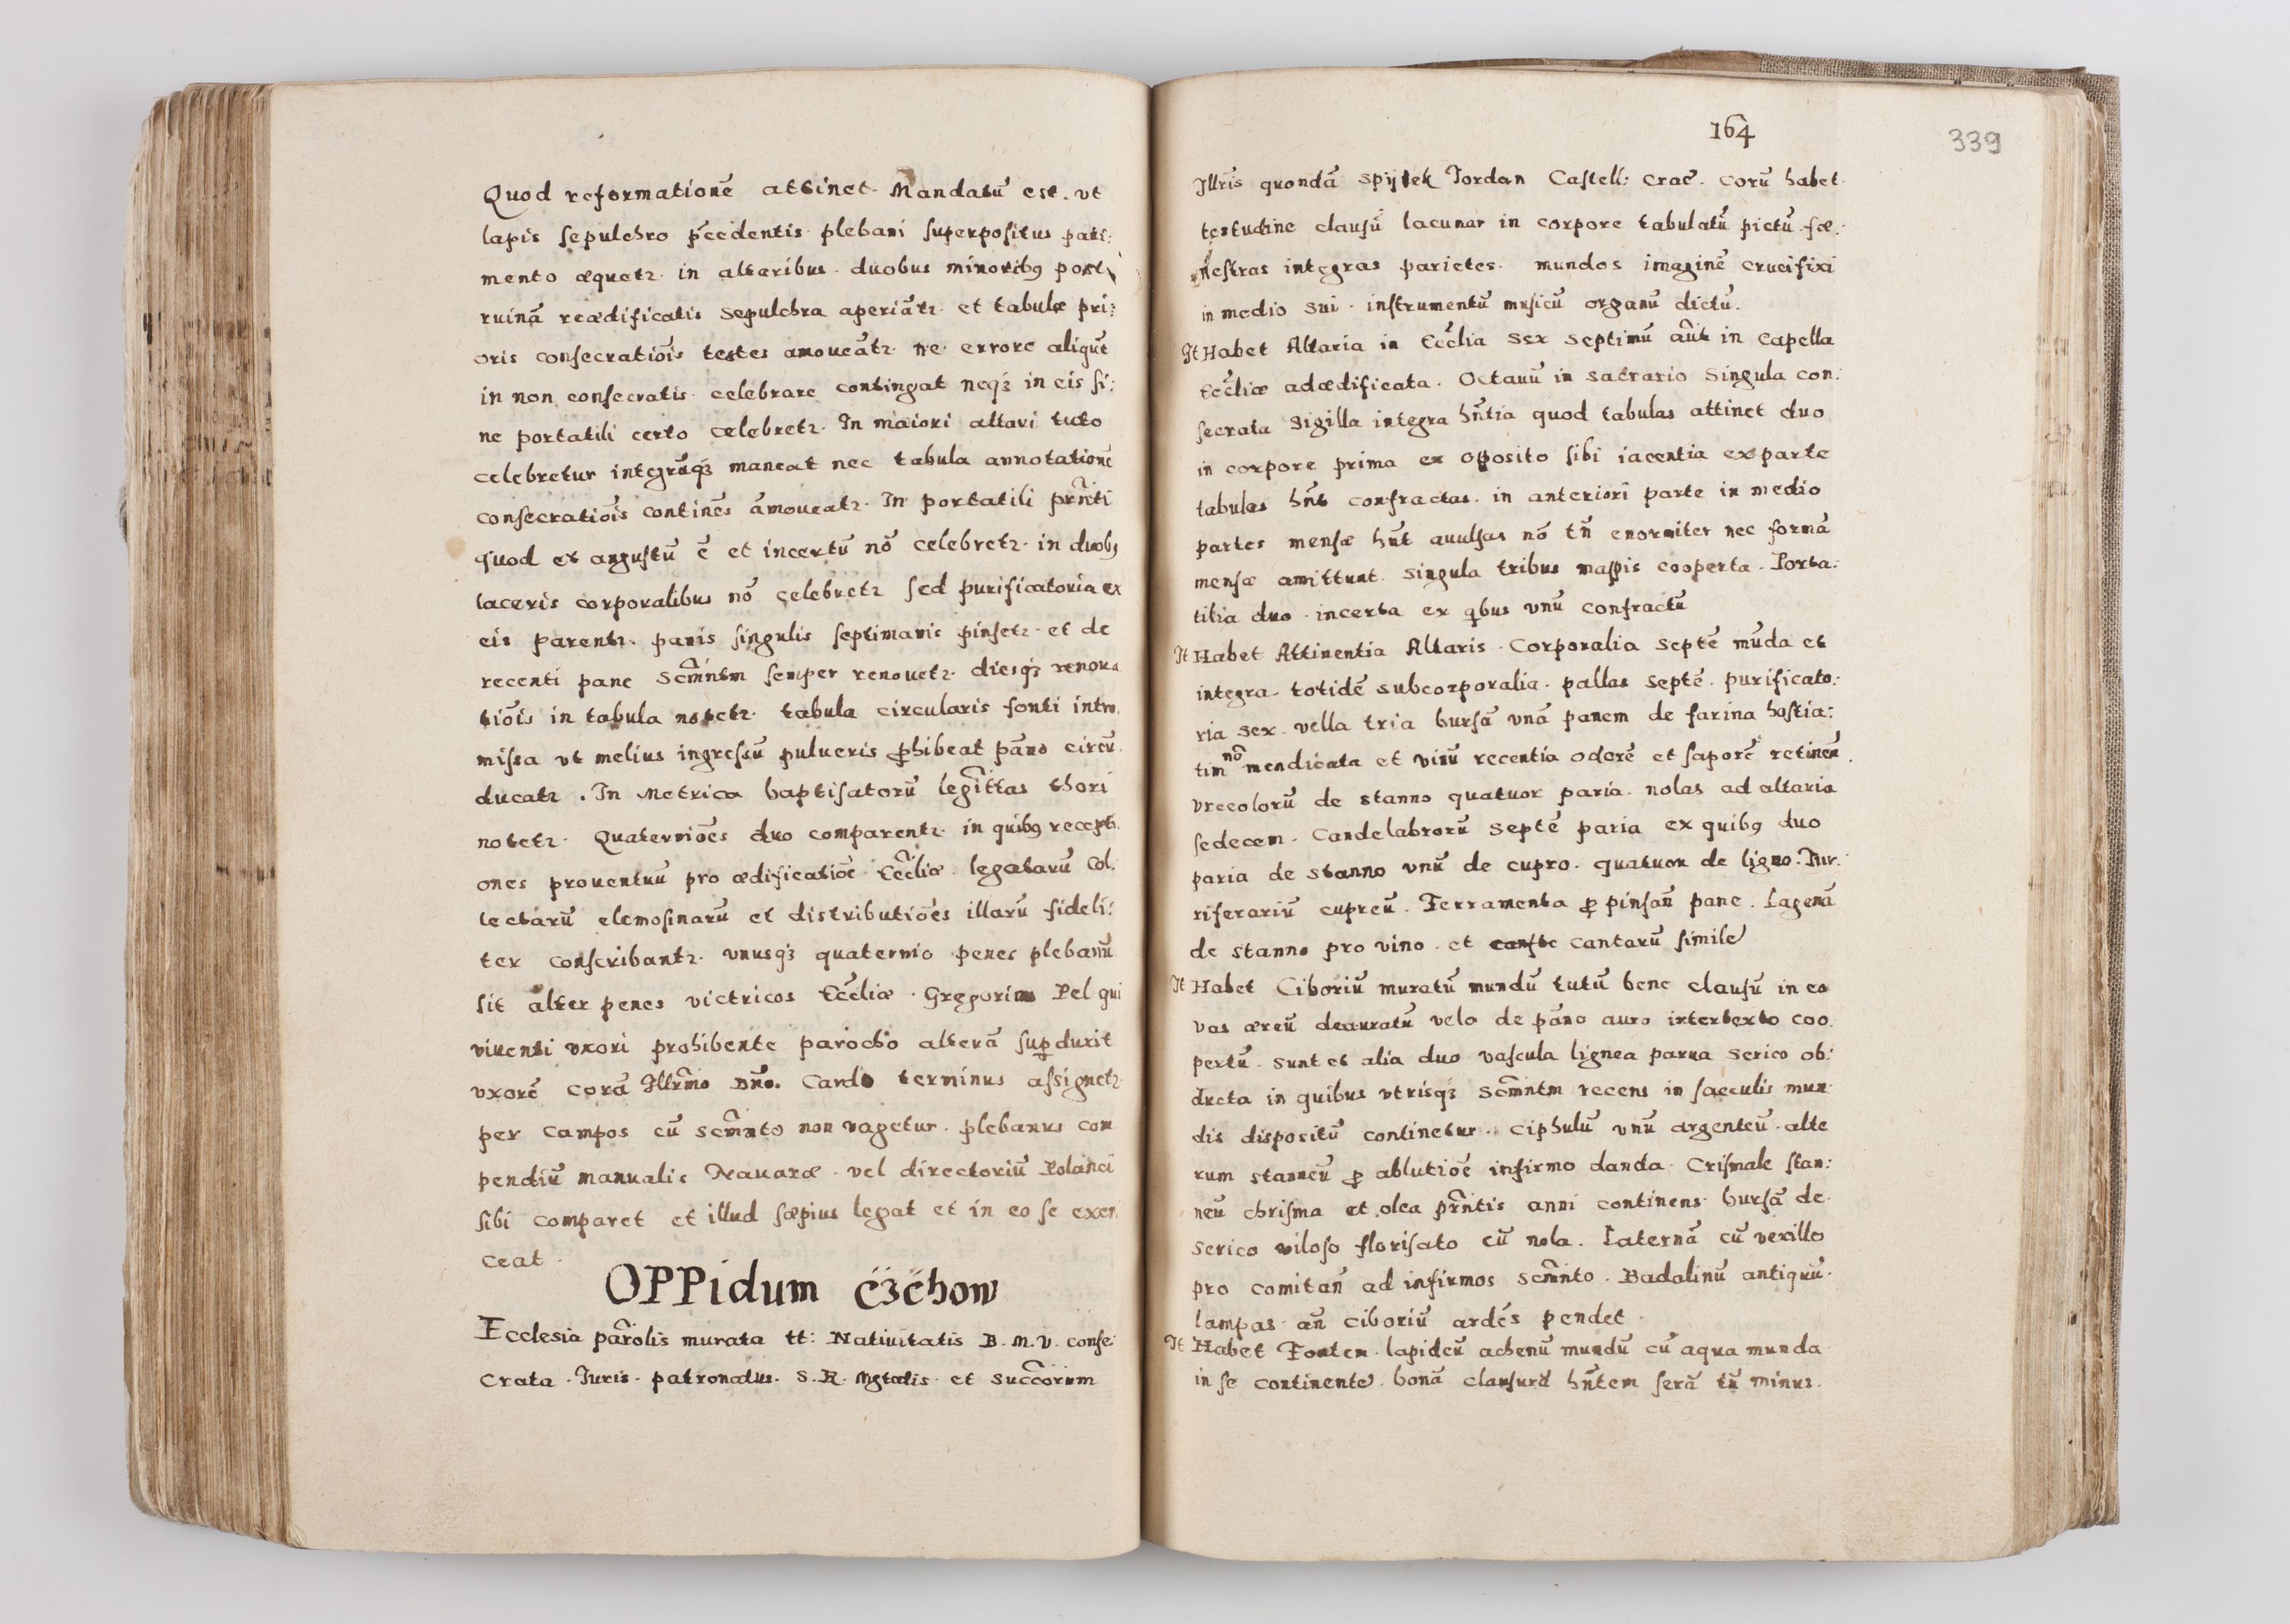 Quod reformationē attinet. Mandatū est. vt
lapis sepulchro p̄cedentis plebani superpositus paui:
mento æquetr. in altaribus. duobus minoribq post
ruinā reædificatis Sepulchra aperiātr. et tabulæ pri:
oris consecratiōis testes amoueātr. ne errore aliquē
in non consecratis celebrare contingat neqȝ in eis si:
ne portatili certo celebretr. In maiori altari tuto
celebretur integrūqȝ maneat nec tabula annotationē
consecratiōis continēs āmoueatr. In portatili prn̄ti
quod et angustū ē et incertū nō celebretr. in duobq
laceris corporalibus nō celebretr sed purificatoria ex
eis parentr. panis singulis septimanis pinsetr. et de
recenti pane Scm̄ntm semper renouetr. diesqȝ renoua
tiōis in tabula notetr. tabula circularis fonti intro.
missa vt melius ingressū pulueris p̱hibeat pāno circū.
ducatr. In Metrica baptisatorū legitt̄as thori
notetr. Quaterniōes duo comparentr. in quibq recepti.
ones prouentuū pro ædificatiōe Eccl̄iæ. legatarū Col.
lectarū elemosinarū et distributiōes illarū fideli:
ter conscribantr. vnusqȝ quaternio penes plebanū
sit alter penes victricos Eccl̄iæ. Gregorius Pel qui
viuenti vxori prohibente parocho alterā sup̱duxit
vxorē corā Illrm̄o Dn̄o. Cardo terminus assignetr.
per campos cū Scm̄nto non vagetur. plebanus com
pendiū manualis Nauaræ. vel directoriū Polanci
sibi comparet et illud sæpius legat et in eo se exer
ceat.
OPPidum Czchow
Ecclesia par̄olis murata tt: Natiuitatis B. M. V. conse:
crata. Iuris. patronatus. S. R. Mgtatis. et Succ̄orum
164
339
Illris̄ quondā Spytek Jordan Castell: Crac̄. Corū habet.
testudine clausū lacunar in corpore tabulatū pictū. fæ.
nestras integras parietes. mundos imaginē crucifixi
in medio sui. instrumentū musicū organū dictū.
It Habet Altaria in Eccl̄ia Sex Septimū aūt in Capella
Eccl̄iæ adædificata. Octauū in Sacrario Singula con:
secrata Sigilla integra hn̄tia quod tabulas attinet duo
in corpore prima ex oposito sibi iacentia ex parte
tabulas hn̄t confractas. in anteriori parte in medio
partes mensæ hn̄t auulsas nō tn̄ enormiter nec formā
mensæ amittunt. Singula tribus mappis cooperta. Porta:
tilia duo. incerta ex qbus vnū confractū
It Habet Attinentia Altaris. Corporalia Septē mūda et
integra. totidē subcorporalia. pallas Septē. purificato:
ria Sex. vella tria bursā vnā panem de farina hostia:
tim nō mendicata et vinū recentia odorē et saporē retinen̄.
vrceolorū de stanno quatuor paria. nolas ad altaria
sedecem. Candelabrorū Septē paria ex quibq duo
paria de Stanno vnū de cupro. quatuor de ligno. Tur.
riferariū cupreū. Ferramenta p̱ pinsan̄ pane. Lagenā
de stanno pro vino. et canste cantarū simile
It Habet Ciboriū muratū mundū tutū bene clausū in eo
vas æreū deauratū velo de pāno auro intertexto coo.
pertū. Sunt et alia duo vascula lignea parua Serico ob:
ducta in quibus vtrisqȝ Scm̄ntm recens in sacculis mun
dis dispositū continetur. Ciphulū vnū argenteū. alte
rum stanneū p̱ ablutiōe infirmo danda. Crismale stan:
neū chrisma et olea prn̄tis anni continens. bursā de.
serico viloso florisato cū nola. Laternā cū vexillo
pro comitan̄ ad infirmos Scm̄nto. Badalinū antiquū.
lampas. an̄ ciboriū ardēs pendet.
It Habet Fontem. lapideū achenū mundū cū aqua munda
in se continente. bonā clausurā hn̄tem serā tn̄ minus.